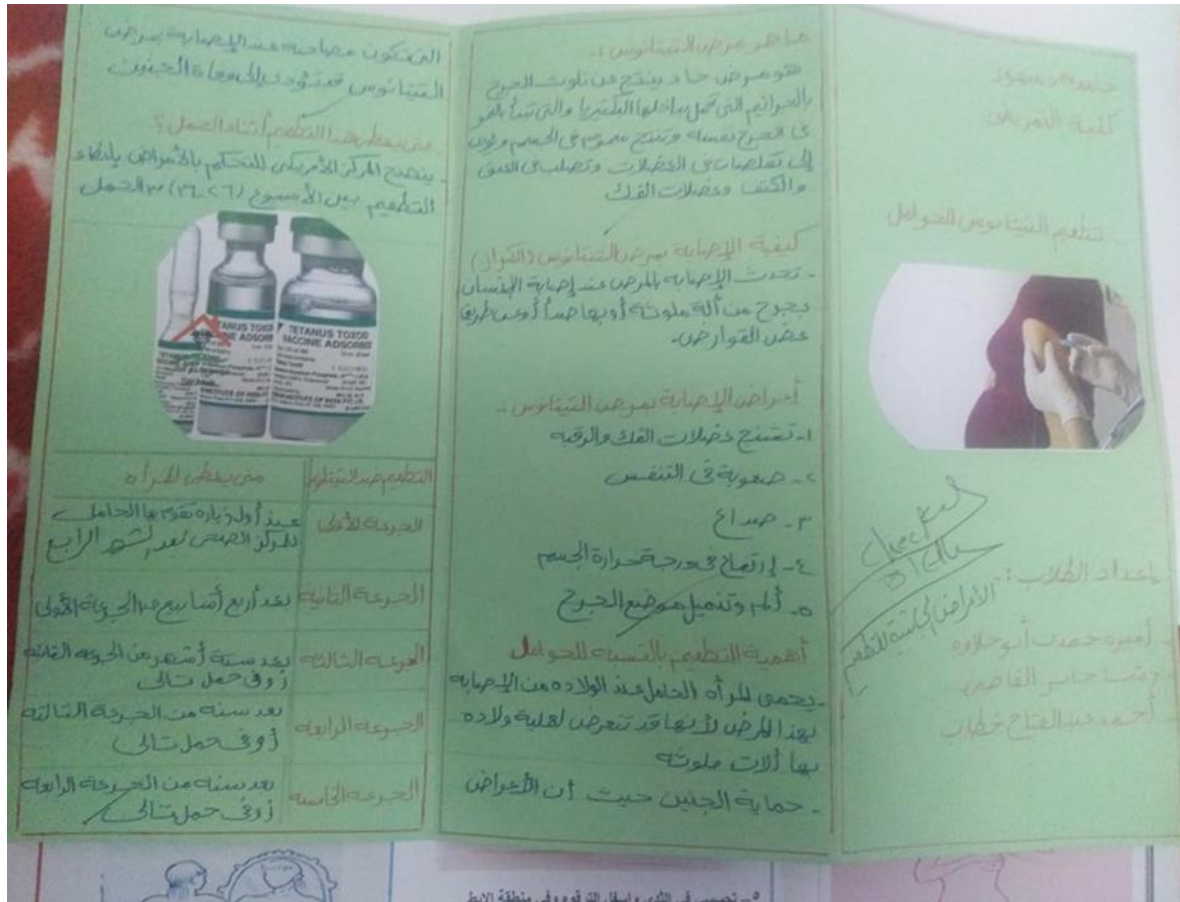 جامعة دمنهور
كلية التمريض
تطعيم التيتانوس للحوامل
إعداد الطلاب :-
- أميره حمدى أبو حلاوه
- رشا جابر القاضى
- أحمد عبد الفتاح خطاب
الأعراض الجانبية للتطعيم
ما هو مرض التيتانوس :-
هو مرض حاد ينتج عن تلوث الجرح
بالجراثيم التى تحمل بداخلها البكتيريا والتى تبدأ بالنمو
فى الجرح نفسه وتنتج سموم فى الجسم ويؤدى
إلى تقلصات فى العضلات وتصلب فى العنق
والكتف وعضلات الفك
كيفية الإصابة بمرض التيتانوس (الكزاز)
- تحدث الإصابه بالمرض عند إصابة الإنسان
بجرح من آلة ملوثة أو بها صدأ أو عن طريق
عض القوارض.
أعراض الإصابة بمرض التيتانوس :-
١- تشنج عضلات الفك والرقبه
٢- صعوبة فى التنفس
٣- صداع
٤- إرتفاع فى درجة حرارة الجسم
٥- ألم وتنميل موضع الجرح
أهمية التطعيم بالنسبه للحوامل
- يحمى المرأه الحامل عند الولاده من الإصابه
بهذا المرض لأنها قد تتعرض لعملية ولاده
بها آلات ملوثه
- حماية الجنين حيث أن الأعراض
التى تكون مصاحبه عند الإصابة بمرض
التيتانوس قد تؤدى إلى وفاة الجنين
متى يعطى هذا التطعيم أثناء الحمل؟
- ينصح المركز الأمريكى للتحكم بالأمراض بإعطاء
التطعيم بين الأسبوع (٢٦-٣٦) من الحمل
TETANUS TOXOID
VACCINE ADSORBED
TETANUS TOXOID
VACCINE ADSORBED
INSTITUTE OF INDIA PVT. LTD.
التطعيم ضد التيتانوس متى يعطى للمرأه
الجرعة الأولى عند أول زياره تقوم بها الحامل
للمركز الصحى بعد الشهر الرابع
الجرعة الثانية بعد أربع أسابيع من الجرعة الأولى
الجرعة الثالثه بعد ستة أشهر من الجرعه الثانيه
أو فى حمل تالى
الجرعة الرابعه بعد سنه من الجرعة الثالثه
أو فى حمل تالى
الجرعة الخامسه بعد سنه من الجرعة الرابعه
أو فى حمل تالى
٥- تصبغ فى الثدى واسفل الترقوه وفى منطقة الابط